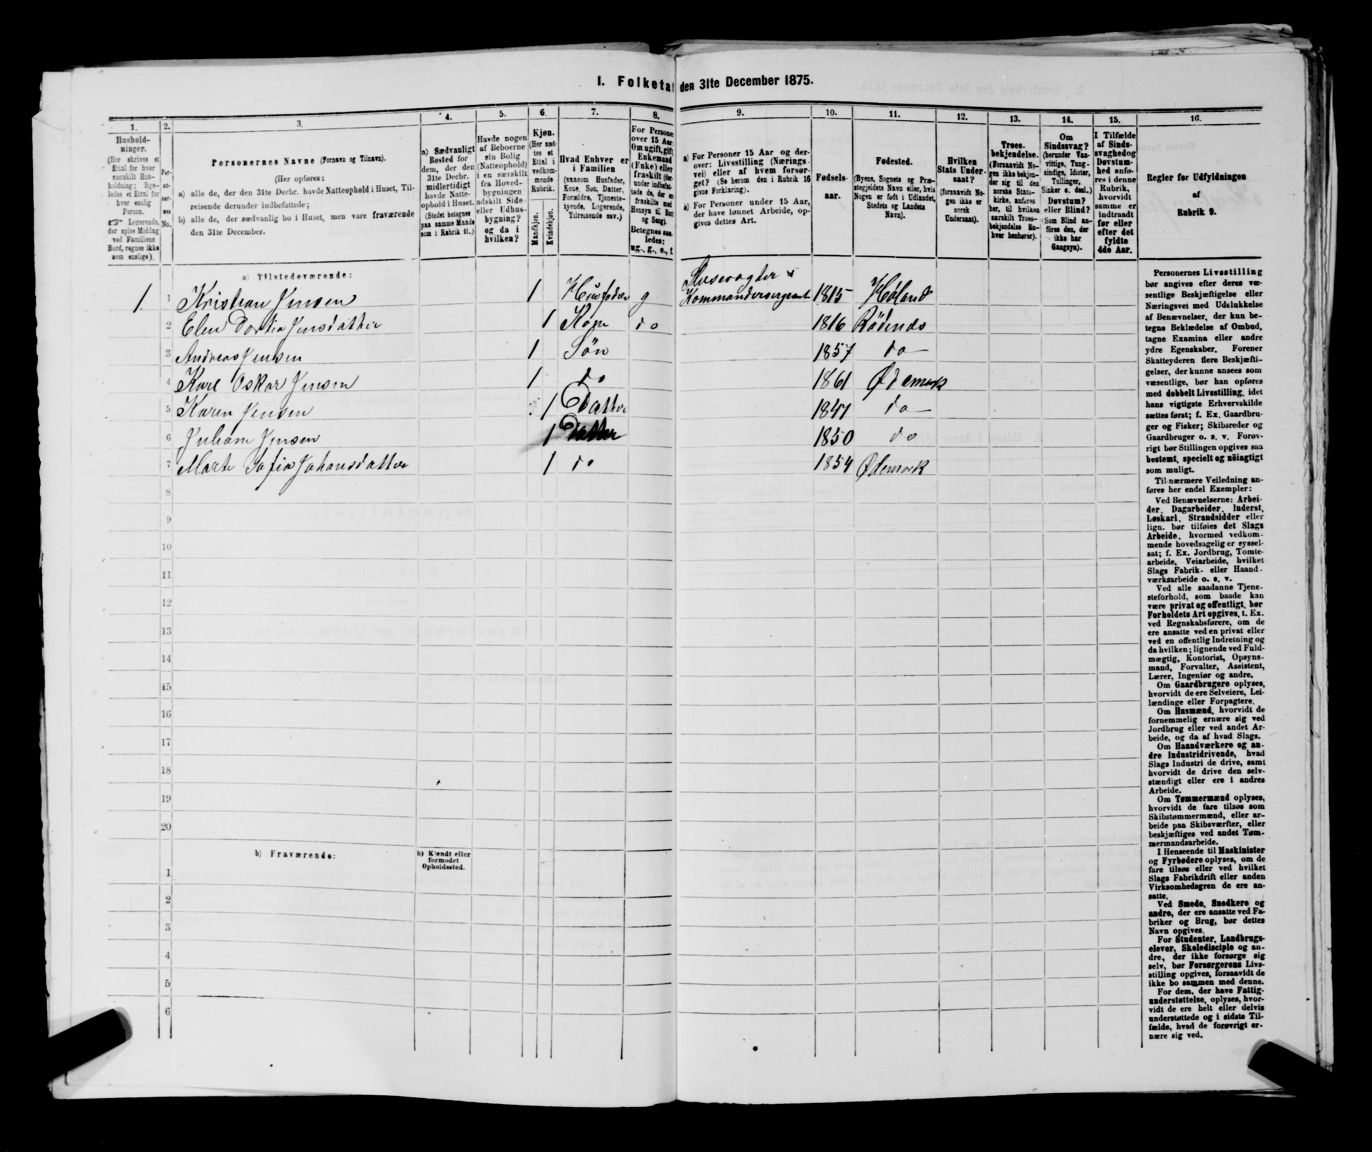 I. Folketæ den 31te December 1875.
1. 2. 3. 4. 5. 6. 7. 8. 9. 10. 11. 12. 13. 14. 15. 16.
Personernes Navne (Fornavn og Tilnavn).
(Her opføres:)
a) alle de, der den 31te Decbr. havde Natteophold i Huset, Tilreisende derunder indbefattede;
b) alle de, der sædvanlig bo i Huset, men vare fraværende
den 31te December.
a) Sædvanligt
Bosted for
dem, der den
31te Decbr.
midlertidigt
havde Natteophold i Huset.
Havde nogen
af Beboerne
sin Bolig
(Natteophold)
i en særskilt
fra Hovedbygningen
adskilt Side- eller Udhusbygning?
og da i
hvilken?
Kjøn.
Mandkjøn.
Kvindekjøn.
Hvad Enhver er
i Familien
(saasom Husfader,
Kone, Søn, Datter,
Forældre, Tjenestetyende, Logerende,
Tilreisende osv.)
a) For Personer 15 Aar og derover: Livsstilling (Næringsvei) eller af hvem forsørget? (Se herom den i Rubrik 16
givne Forklaring).
b) For Personer under 15 Aar,
der have lønnet Arbeide, opgives dettes Art.
Fødselsaar.
Fødested.
(Byens, Sognets og Præstegjeldets Navn eller, hvis
Nogen er født i Udlandet,
Stedets og Landets
Navn).
Hvilken
Stats Undersaat?
(forsaavidt Nogen ikke er
norsk
Undersaat).
Troesbekjendelse.
(Forsaavidt Nogen ikke bekjender sig til den
norske Statskirke, anføres
her, til hvilken
særskilt Troesbekjendelse Enhver henhører).
Om
Sindssvag?
(herunder Vanvittige, Tungsindige, Idioter,
Tullinger,
Sinker o. desl.)
Døvstum?
eller Blind?
(Som Blind anføres den, der
ikke har
Gangsyn).
I Tilfælde
af Sindssvaghed og
Døvstumhed anføres i denne
Rubrik,
hvorvidt
samme er
indtraadt
før eller
efter det
fyldte
4de Aar.
Regler for Udfyldningen
af
Rubrik 9.
a) Tilstedeværende:
1. 1 Kristian Jensen 1 Husfader g Kommandersergeant 1815 Høland
2 Elen Dortia Jensdatter 1 Kone do 1816 Rødenæs
3 Andreas Jensen 1 Søn 1857 do
4 Karl Oskar Jensen 1 do 1861 Ødemark
5 Karen Jensen 1 Datter 1847 do
6 Juliane Jensen 1 Datter 1850 do
7 Marte Sofie Johansdatter 1 do 1854 Ødemark
8
9
10
11
12
13
14
15
16
17
18
19
20
b) Fraværende: b) Kjendt eller
formodet
Opholdssted.
1
2
3
4
5
6
Personernes Livsstilling
bør angives efter deres væsentlige Beskjæftigelse eller
Næringsvei med Udelukkelse
af Benævnelser, der kun betegne Beklædelse af Ombud,
tagne Examina eller andre
ydre Egenskaber. Forener
Skatteyderen flere Beskjæftigelser, der kunne ansees som
væsentlige, bør han opføres
med dobbelt Livsstilling, idet
hans vigtigste Erhvervskilde
sættes først; f. Ex. Gaardbruger og Fisker; Skibsreder og
Gaardbruger o. s. v. Forøvrigt bør Stillingen opgives saa
bestemt, specielt og nøiagtigt
som muligt.
Til nærmere Veiledning anføres her endel Exempler:
Ved Benævnelserne: Arbeider, Dagarbeider, Inderst,
Løskarl, Strandsidder eller
lign. bør tilføies det Slags
Arbeide, hvormed vedkommende hovedsagelig er sysselsat; f. Ex. Jordbrug, Tomtearbeide, Veiarbeide, hvilket
Slags Fabrik- eller Haandværksarbeide o. s. v.
Ved alle saadanne Tjenesteforhold, som baade kan
være privat og offentligt, bør
Forholdets Art opgives, t. Ex.
ved Regnskabsførere, om de
ere ansatte ved en privat eller
ved en offentlig Indretning og
da hvilken; lignende ved Fuldmægtig, Kontorist, Opsynsmand, Forvalter, Assistent,
Lærer, Ingeniør og andre.
Om Gaardbrugere oplyses,
hvorvidt de ere Selveiere, Leilændinge eller Forpagtere.
Om Husmænd, hvorvidt de
fornemmelig ernære sig ved
Jordbrug eller ved andet Arbeide, og da af hvad Slags.
Om Haandværkere og andre Industridrivende, hvad
Slags Industri de drive, samt
hvorvidt de drive den selvstændigt eller ere i andres
Arbeide.
Om Tømmermænd oplyses,
hvorvidt de fare tilsøs som
Skibstømmermænd, eller arbeide paa Skibsværfter, eller
beskjæftiges ved andet Tømmermandsarbeide.
I Henseende til Maskinister
og Fyrbødere oplyses, om de
fare tilsøs eller ved hvilket
Slags Fabrikdrift eller anden
Virksomhedsgren de ere ansatte.
Ved Smede, Snedkere og
andre, der ere ansatte ved Fabriker og Brug, bør dettes
Navn opgives.
For Studenter, Landbrugselever, Skoledisciple og andre, der ikke forsørge sig
selv, bør Forsørgerens Livsstilling opgives, forsaavidt de
ikke bo sammen med denne.
For dem, der have Fattigunderstøttelse, oplyses, hvorvidt de ere helt eller delvis
understøttede og i sidste Tilfælde, hvad de forøvrigt ernære sig ved.